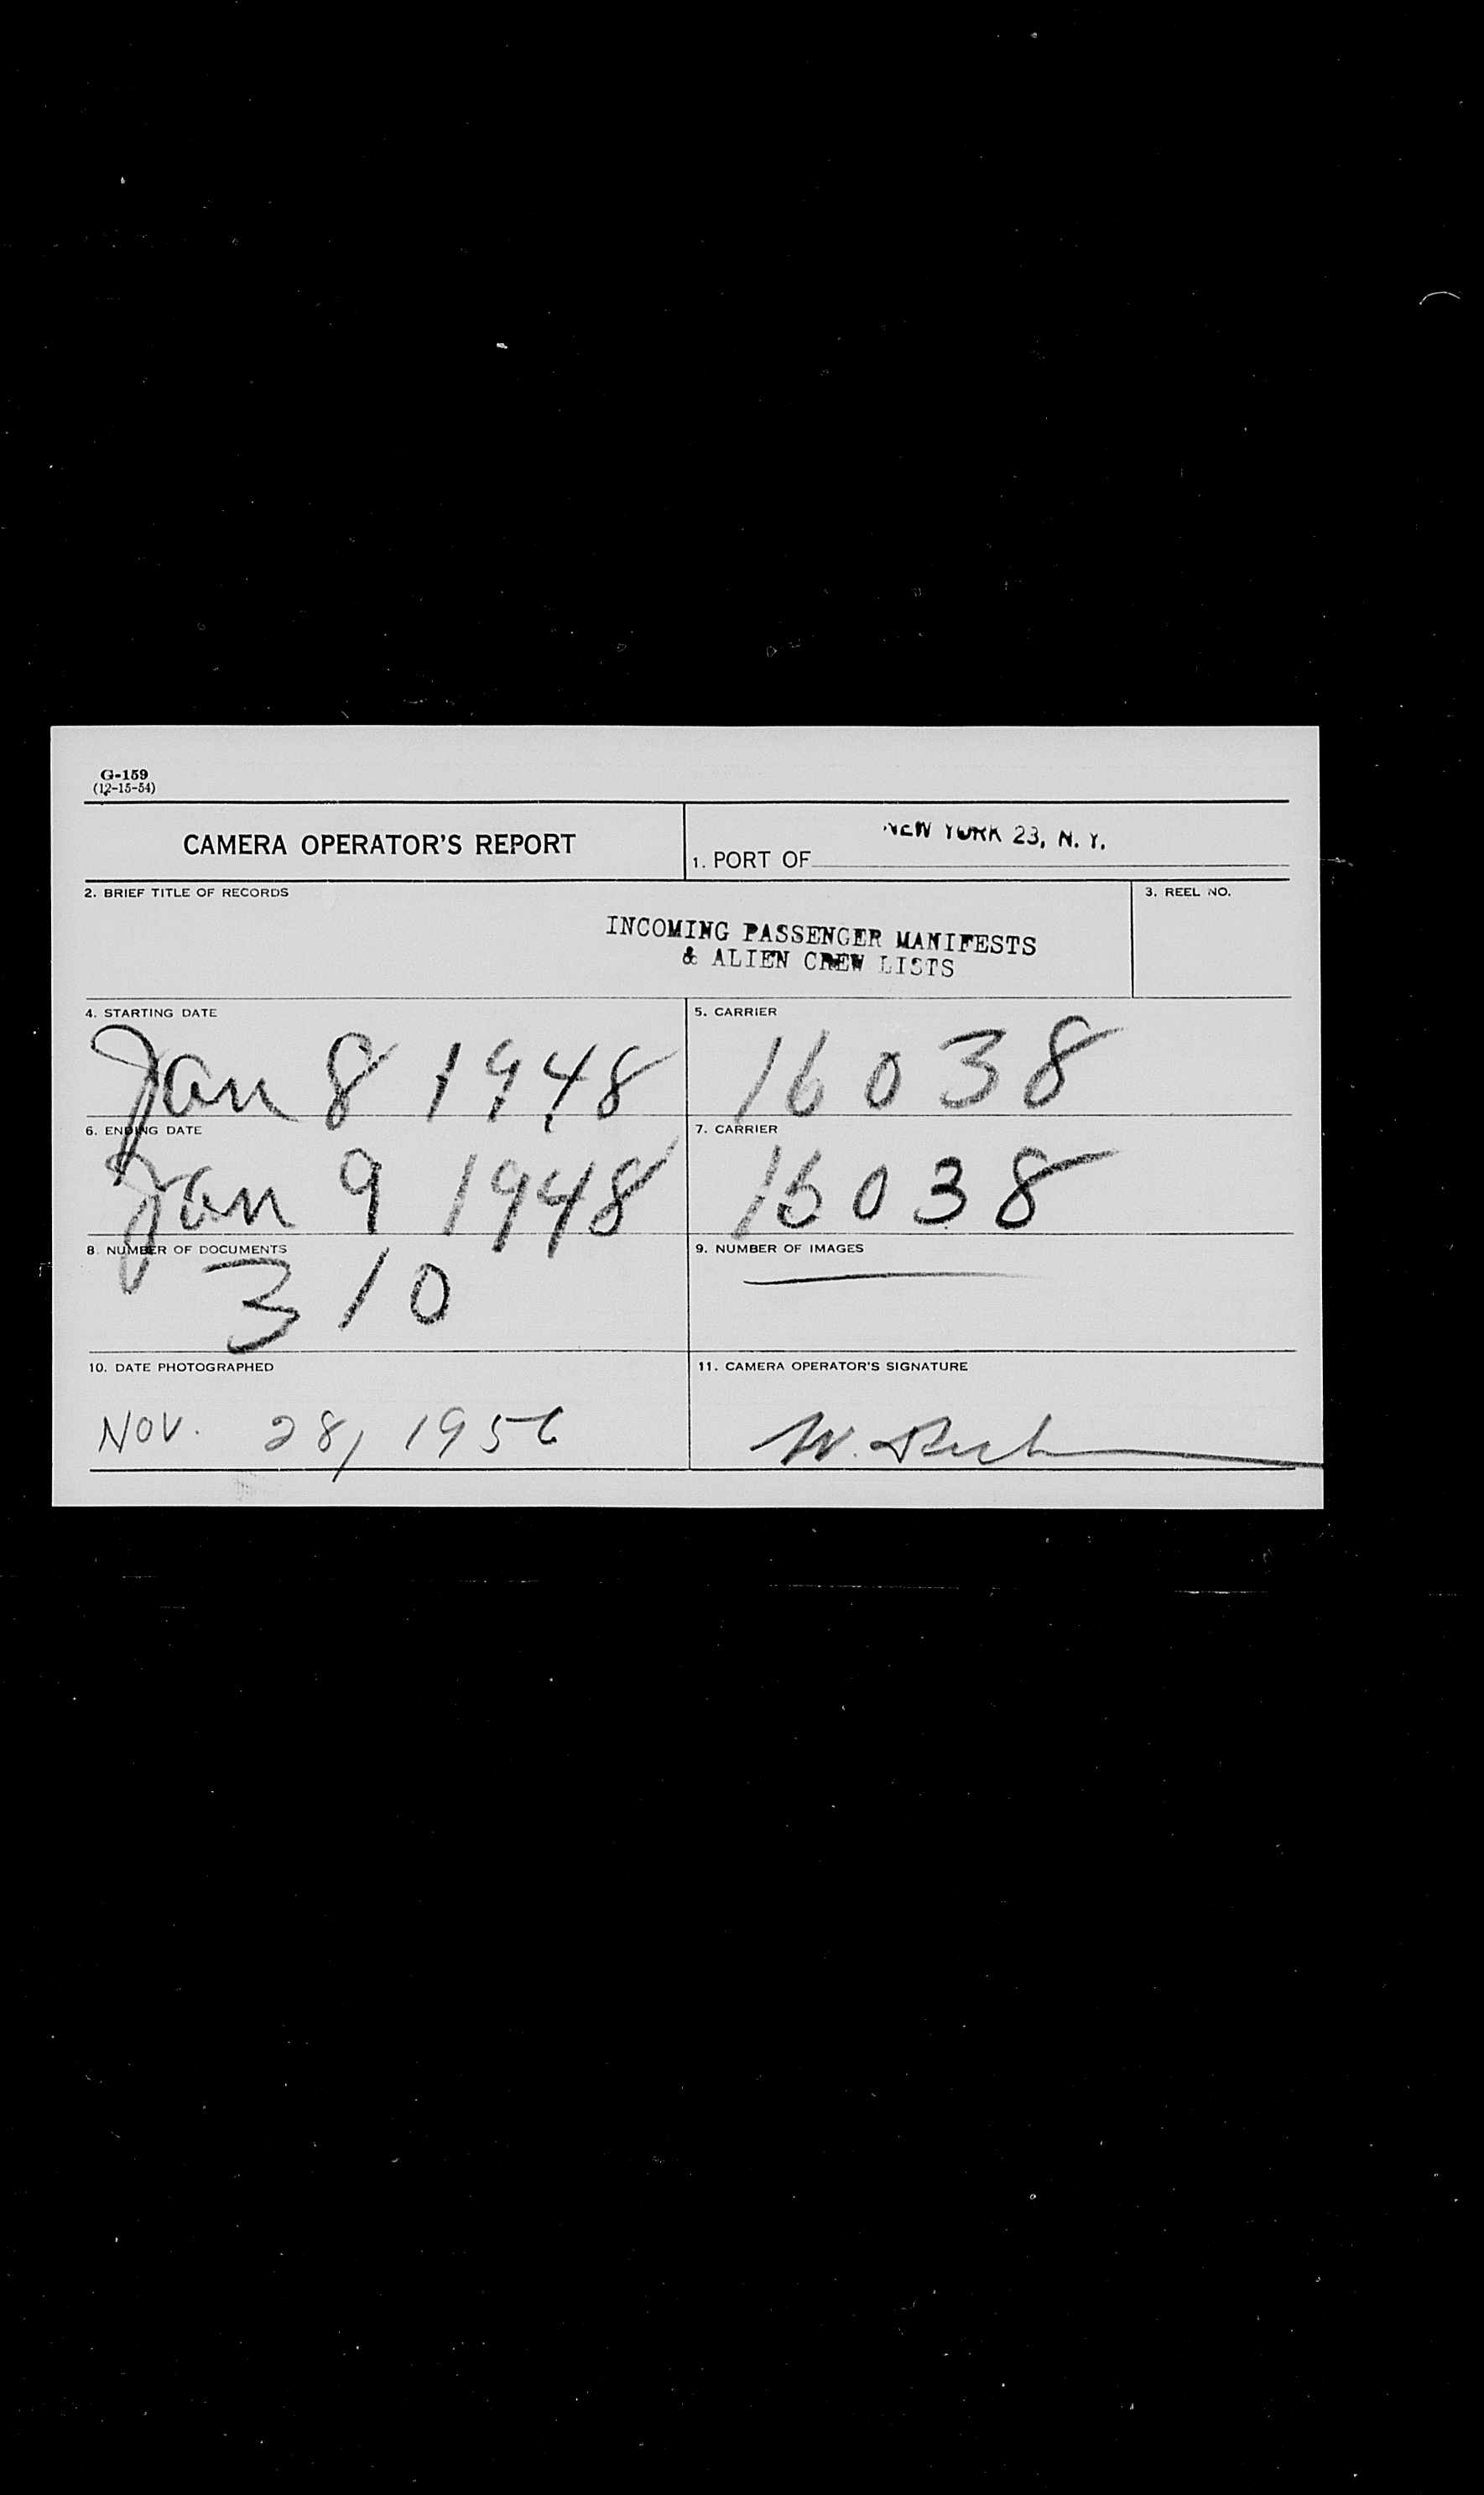 G-159
(12-15-54)
CAMERA OPERATOR'S REPORT
1. PORT OF NEW YORK 23, N. Y.
2. BRIEF TITLE OF RECORDS
3. REEL NO.
INCOMING PASSENGER MANIFESTS
& ALIEN CREW LISTS
4. STARTING DATE
Jan 8 1948
5. CARRIER
16038
6. ENDING DATE
Jan 9 1948
7. CARRIER
16038
8. NUMBER OF DOCUMENTS
310
9. NUMBER OF IMAGES
10. DATE PHOTOGRAPHED
NOV. 28, 1956
11. CAMERA OPERATOR'S SIGNATURE
W.